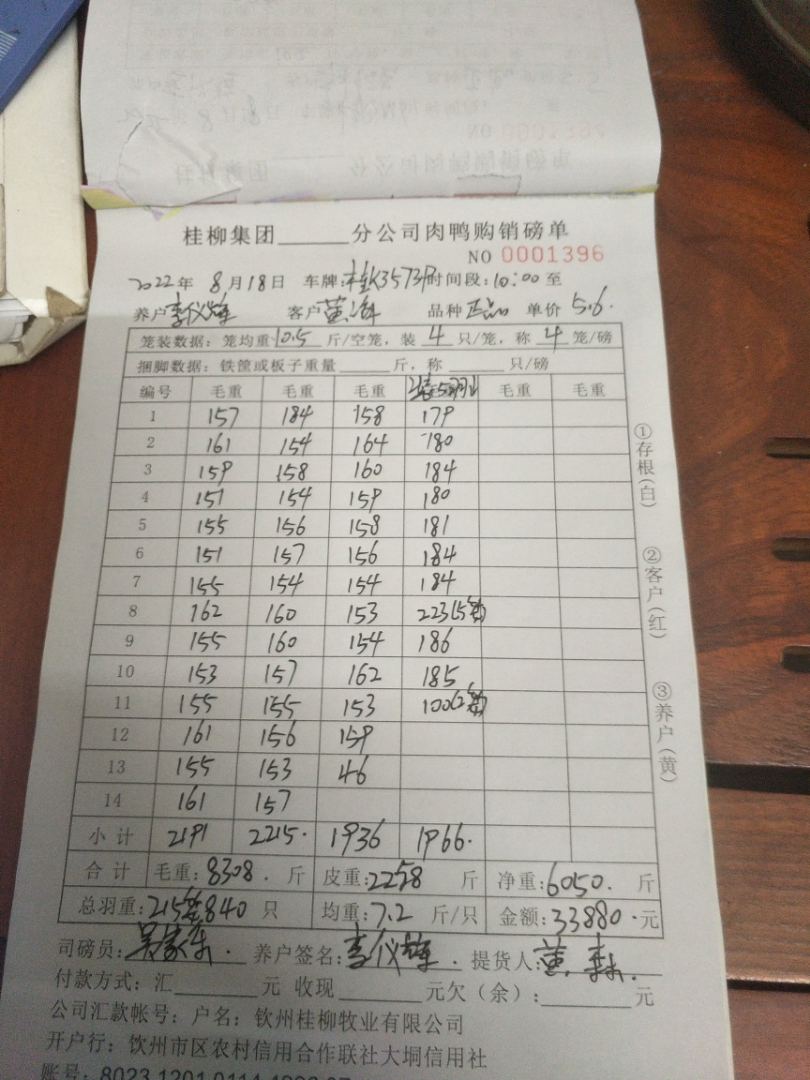 桂柳集团______分公司肉鸭购销磅单
NO 0001396
2022年 8月18日 车牌:桂K3573 时间段:10:00至
养户李仪辉 客户黄 品种正品 单价5.6.
笼装数据:笼均重10.5斤/空笼,装4只/笼,称4笼/磅
捆脚数据:铁筐或板子重量______斤,称______只/磅
编号 毛重 毛重 毛重 毛重 毛重
1 157 184 158 179
2 161 154 164 180
3 159 158 160 184
4 151 154 159 180
5 155 156 158 181
6 151 157 156 184
7 155 154 154 184
8 162 160 153 223(5笼)
9 155 160 154 186
10 153 157 162 185
11 155 155 153 100(2笼)
12 161 156 159
13 155 153 46
14 161 157
小计 2191 2215. 1936 1966.
合计 毛重:8308.斤 皮重:2258 斤 净重:6050.斤
总羽重:215笼840 只 均重:7.2 斤/只 金额:33880.元
司磅员: 养户签名:李仪辉. 提货人:黄
付款方式:汇______元 收现______元欠(余):______元
公司汇款帐号:户名:钦州桂柳牧业有限公司
开户行:钦州市区农村信用合作联社大垌信用社
账号:8023 1201 0114
①存根(白)
②客户(红)
③养户(黄)